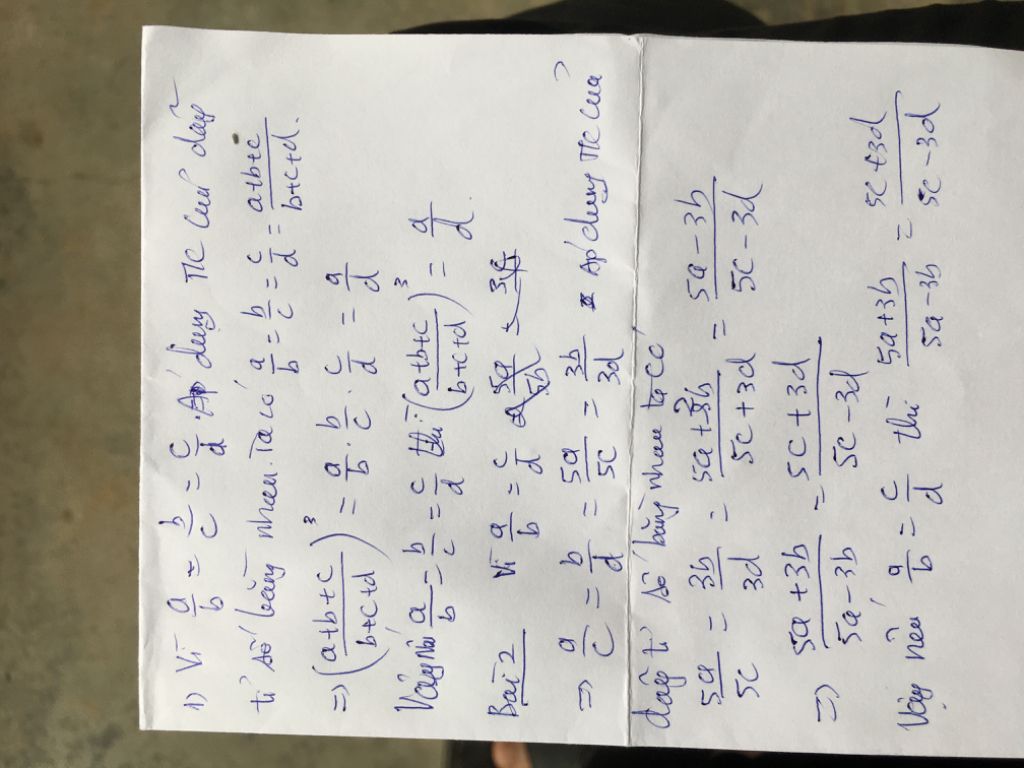 1) Vì a/b = b/c = c/d. Áp dụng TC của dãy
tỉ số bằng nhau. Ta có a/b = b/c = c/d = (a+b+c)/(b+c+d).
=> ((a+b+c)/(b+c+d))³ = a/b . b/c . c/d = a/d
Vậy nếu a/b = b/c = c/d thì ((a+b+c)/(b+c+d))³ = a/d.
Bài 2 Vì a/b = c/d
=> a/c = b/d = 5a/5c = 3b/3d Áp dụng TC của
dãy tỉ số bằng nhau ta có
5a/5c = 3b/3d = (5a+3b)/(5c+3d) = (5a-3b)/(5c-3d)
=> (5a+3b)/(5a-3b) = (5c+3d)/(5c-3d)
Vậy nếu a/b = c/d thì (5a+3b)/(5a-3b) = (5c+3d)/(5c-3d)